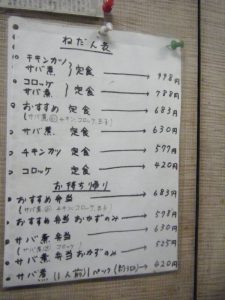 ねだん表
チキンカツ
サバ煮 } 定食 → 998円
コロッケ
サバ煮 } 定食 → 788円
おすすめ 定食 → 683円
(サバ煮 チキン, コロッケ, 玉子)
サバ煮 定食 → 630円
チキンカツ 定食 → 577円
コロッケ 定食 → 420円
お持ち帰り
おすすめ弁当 → 683円
(サバ煮 チキン, コロッケ, 玉子)
おすすめ弁当 おかずのみ → 578円
サバ煮 弁当 → 630円
(サバ煮 コロッケ)
サバ煮弁当 おかずのみ → 525円
サバ煮 (1人前) 1パック → 420円